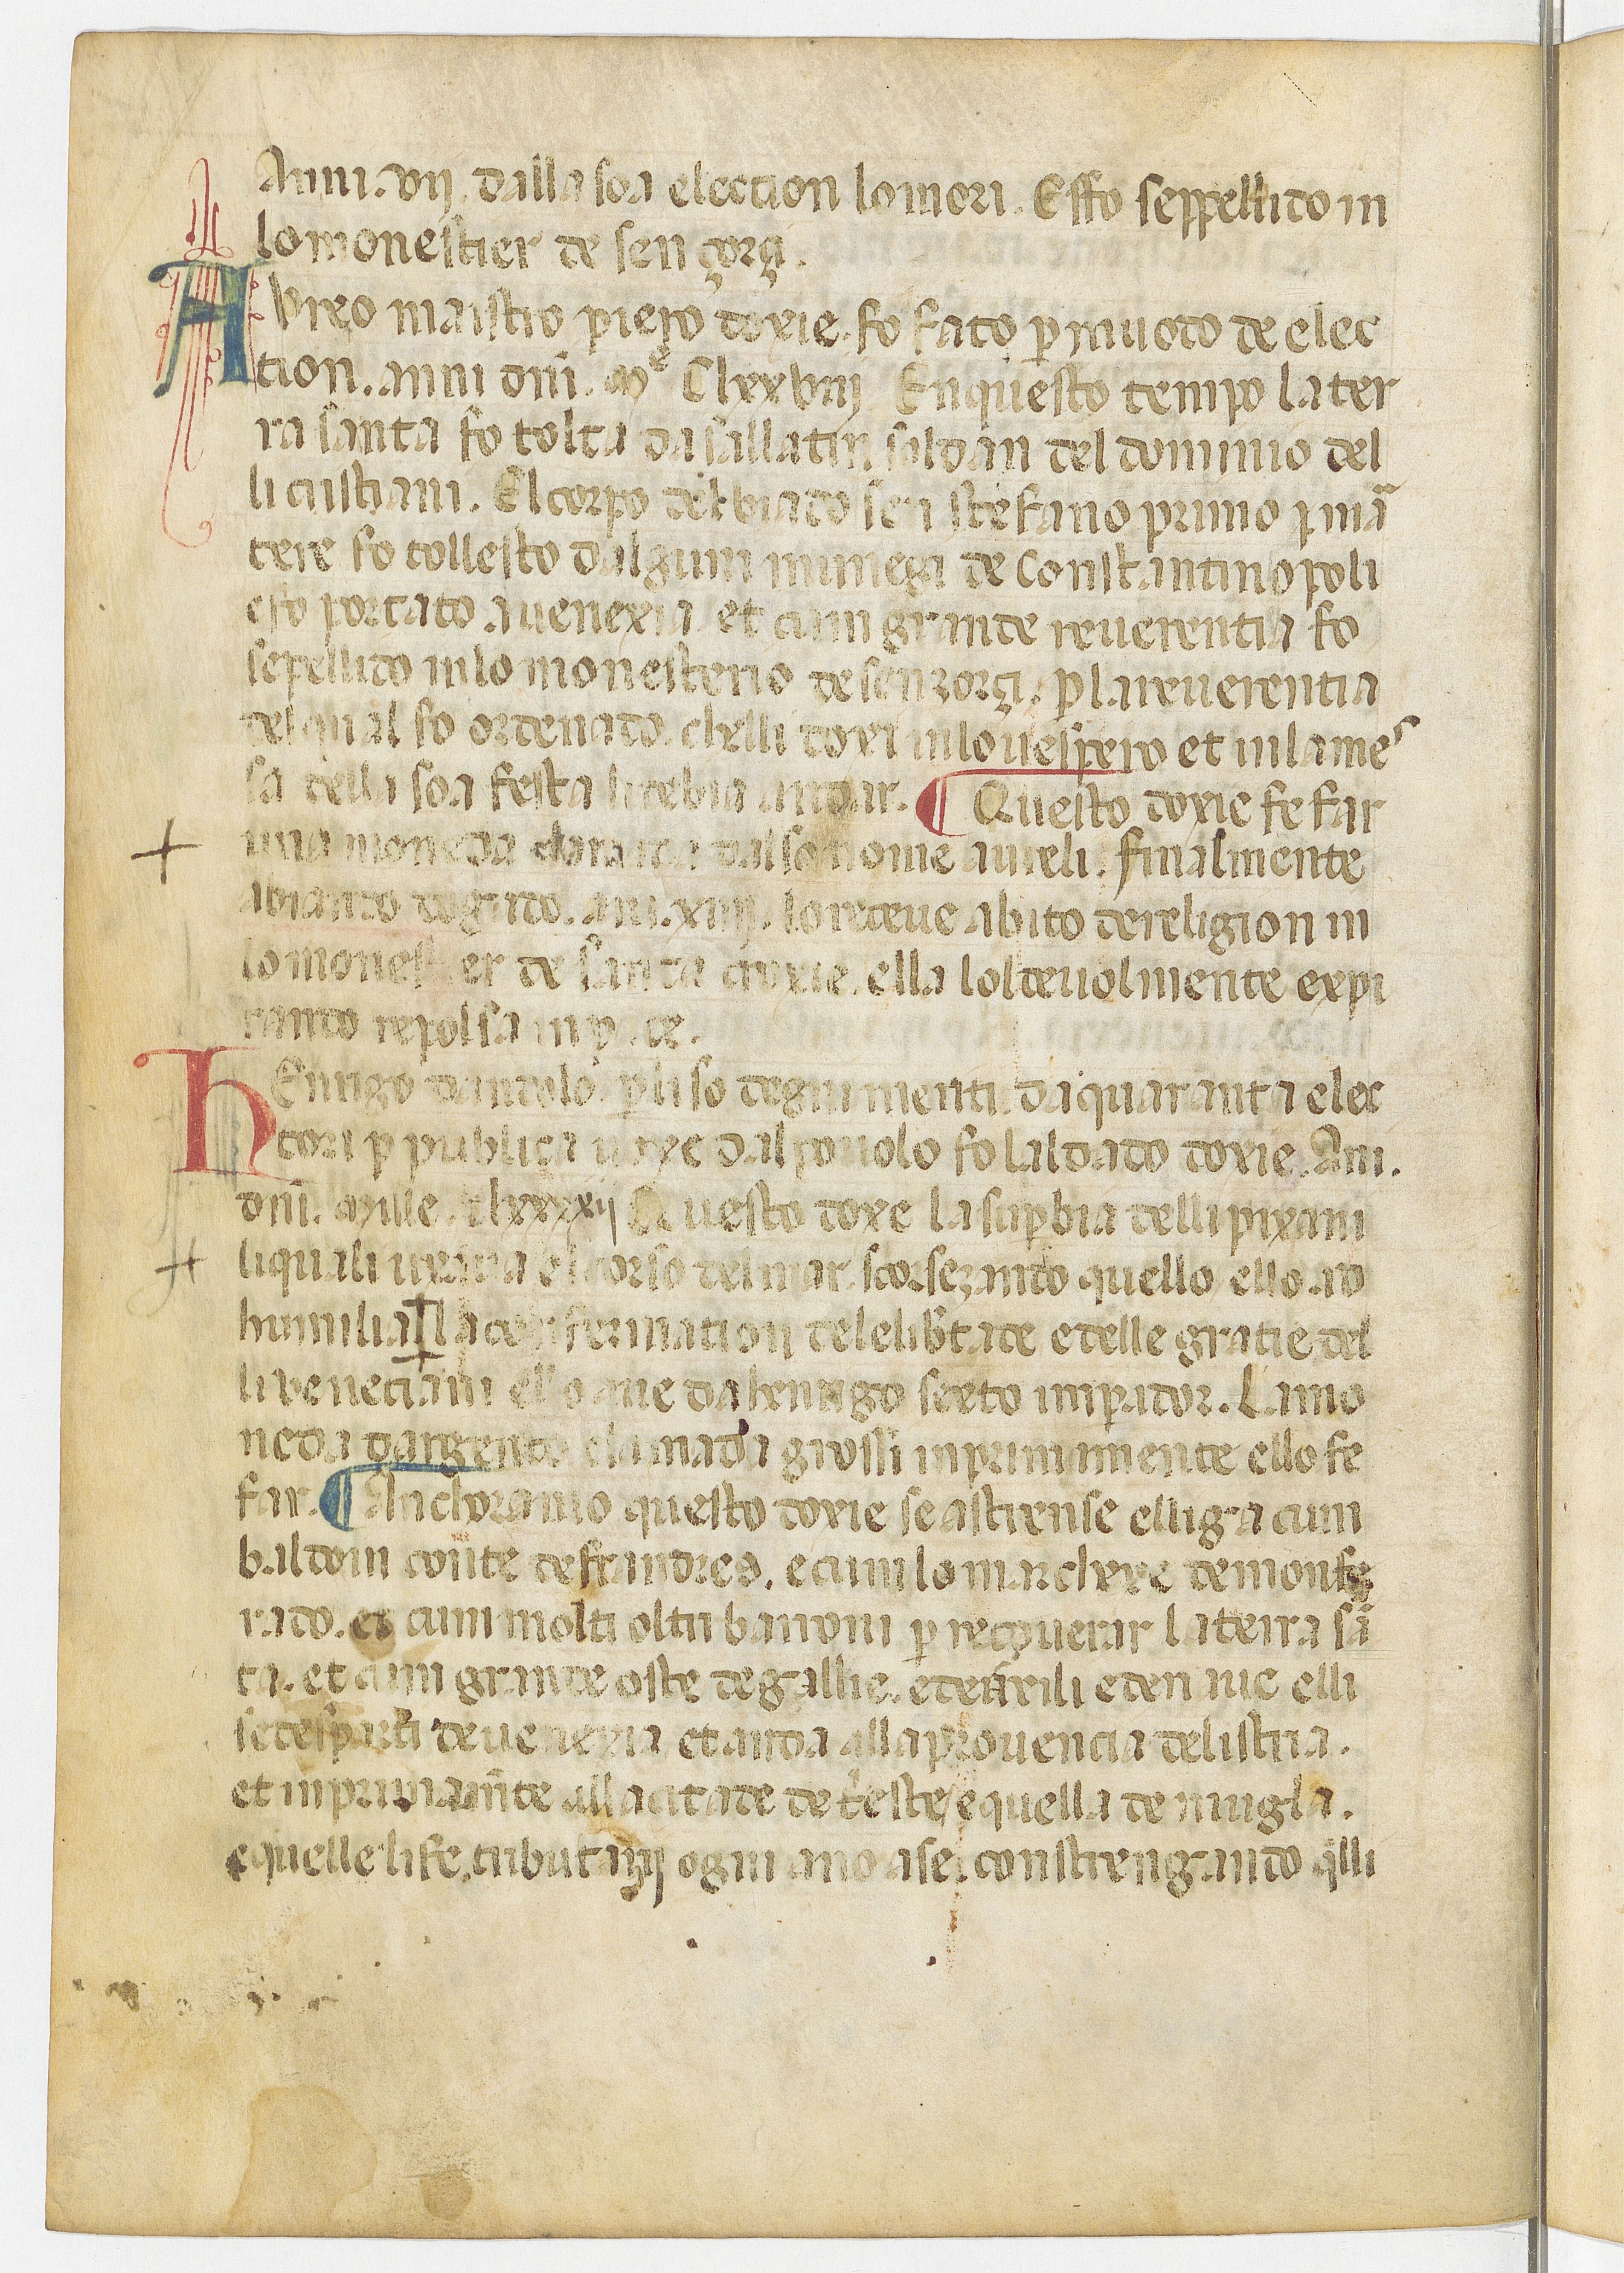 Anni. vij. dalla soa election lo mori. Esfo seppellido in
lo monestier de sen çorçi.
AVreo maistro piero doxie. fo fato p muodo de elec
tion. anni dni. Mº Clxxviij Enquesto tempo la ter
ra santa fo tolta da sallatin soldan del dominio del
li cristiani. El corpo del biado sen stefano primo
tere fo tollesto dalguni munegi de Constantinopoli
efo portato a uenexia et cum grande reuerentia fo
sepellido in lo monesterio de sen zorzi. p la reuerentia
del qual fo ordenado. chelli doxi in lo uespero et in la mes
sa della soa festa li debia andar. ¶ Questo doxie fe far
una moneda clamada dal so nome aureli. finalmente
abiando dogado. ani. xiiij. lo receue abito de religion in
lo monestier de santa croxe. ella loldeuolmente expi
rando repolsa in pace.
HEnrigo dandolo. p li so degni meriti. da quaranta elec
tori p publica uoxe dal pouolo fo laldado doxie. Ani.
dni. Mille. clxxxxij Questo doxe la supbia delli pixani
li quali urtaua el corso del mar. scorsezando quello ello ao
humilia la confermation dele libtade e delle gratie del
li veneciani ello aue da henrigo sexto impador. La mo
neda dargento clamada grossi inprimamente ello fe
far. ¶ Anchoramo questo doxie se astrense elliga cum
baldoin conte de fiandres. e cum lo marchexe de monfe
rado. et cum molti oltri baroni p recouerar la terra sã
ta. et cum grande oste de gallie. e de uxili e de naue elli
se desparti de uenexia et anda alla prouencia de listria.
et inprimamte alla citade de treste e quella de mugla.
e quelle li fe tributarij ogni ano a se. constrengando qlli